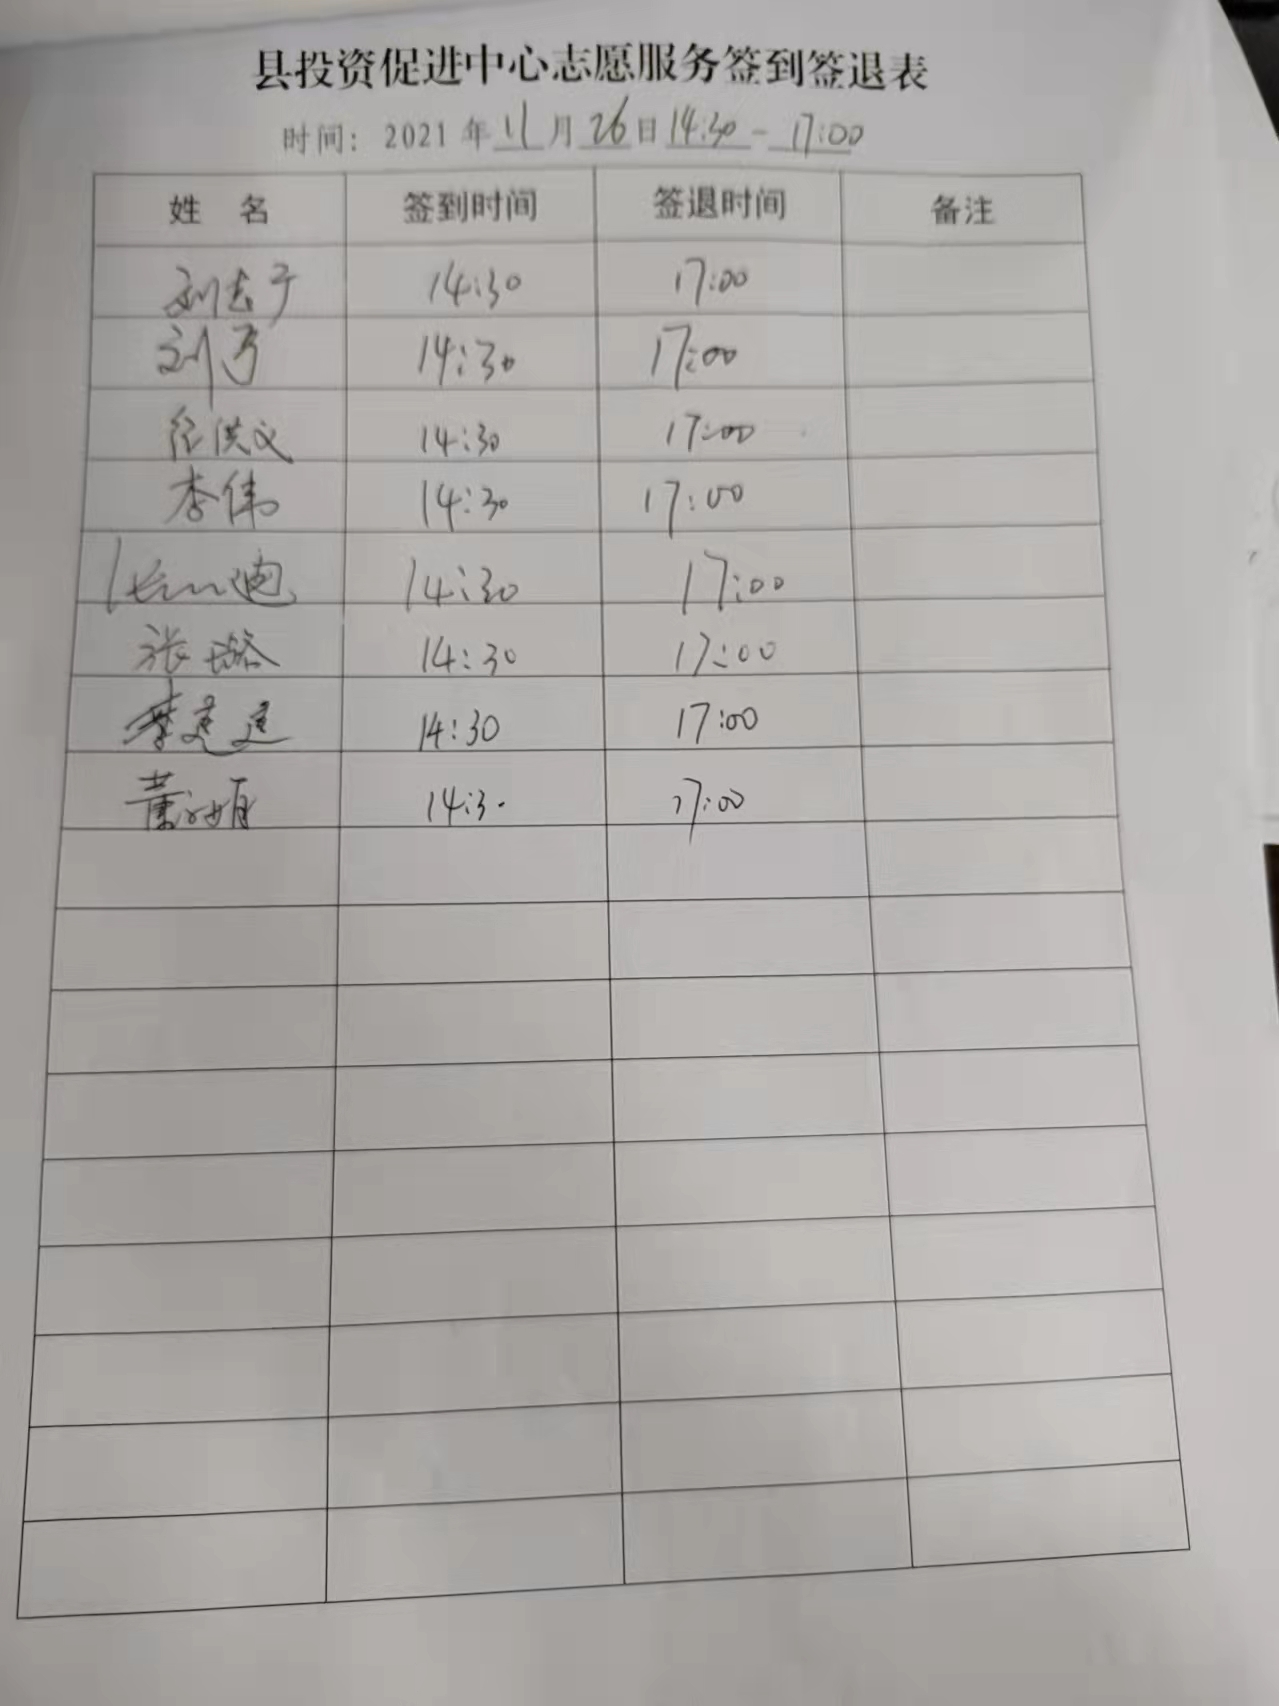 县投资促进中心志愿服务签到签退表
时间：2021年11月26日14:30-17:00
姓 名 签到时间 签退时间 备注
刘志于 14:30 17:00
刘 14:30 17:00
洪文 14:30 17:00
李伟 14:30 17:00
14:30 17:00
张璐 14:30 17:00
14:30 17:00
14:30 17:00